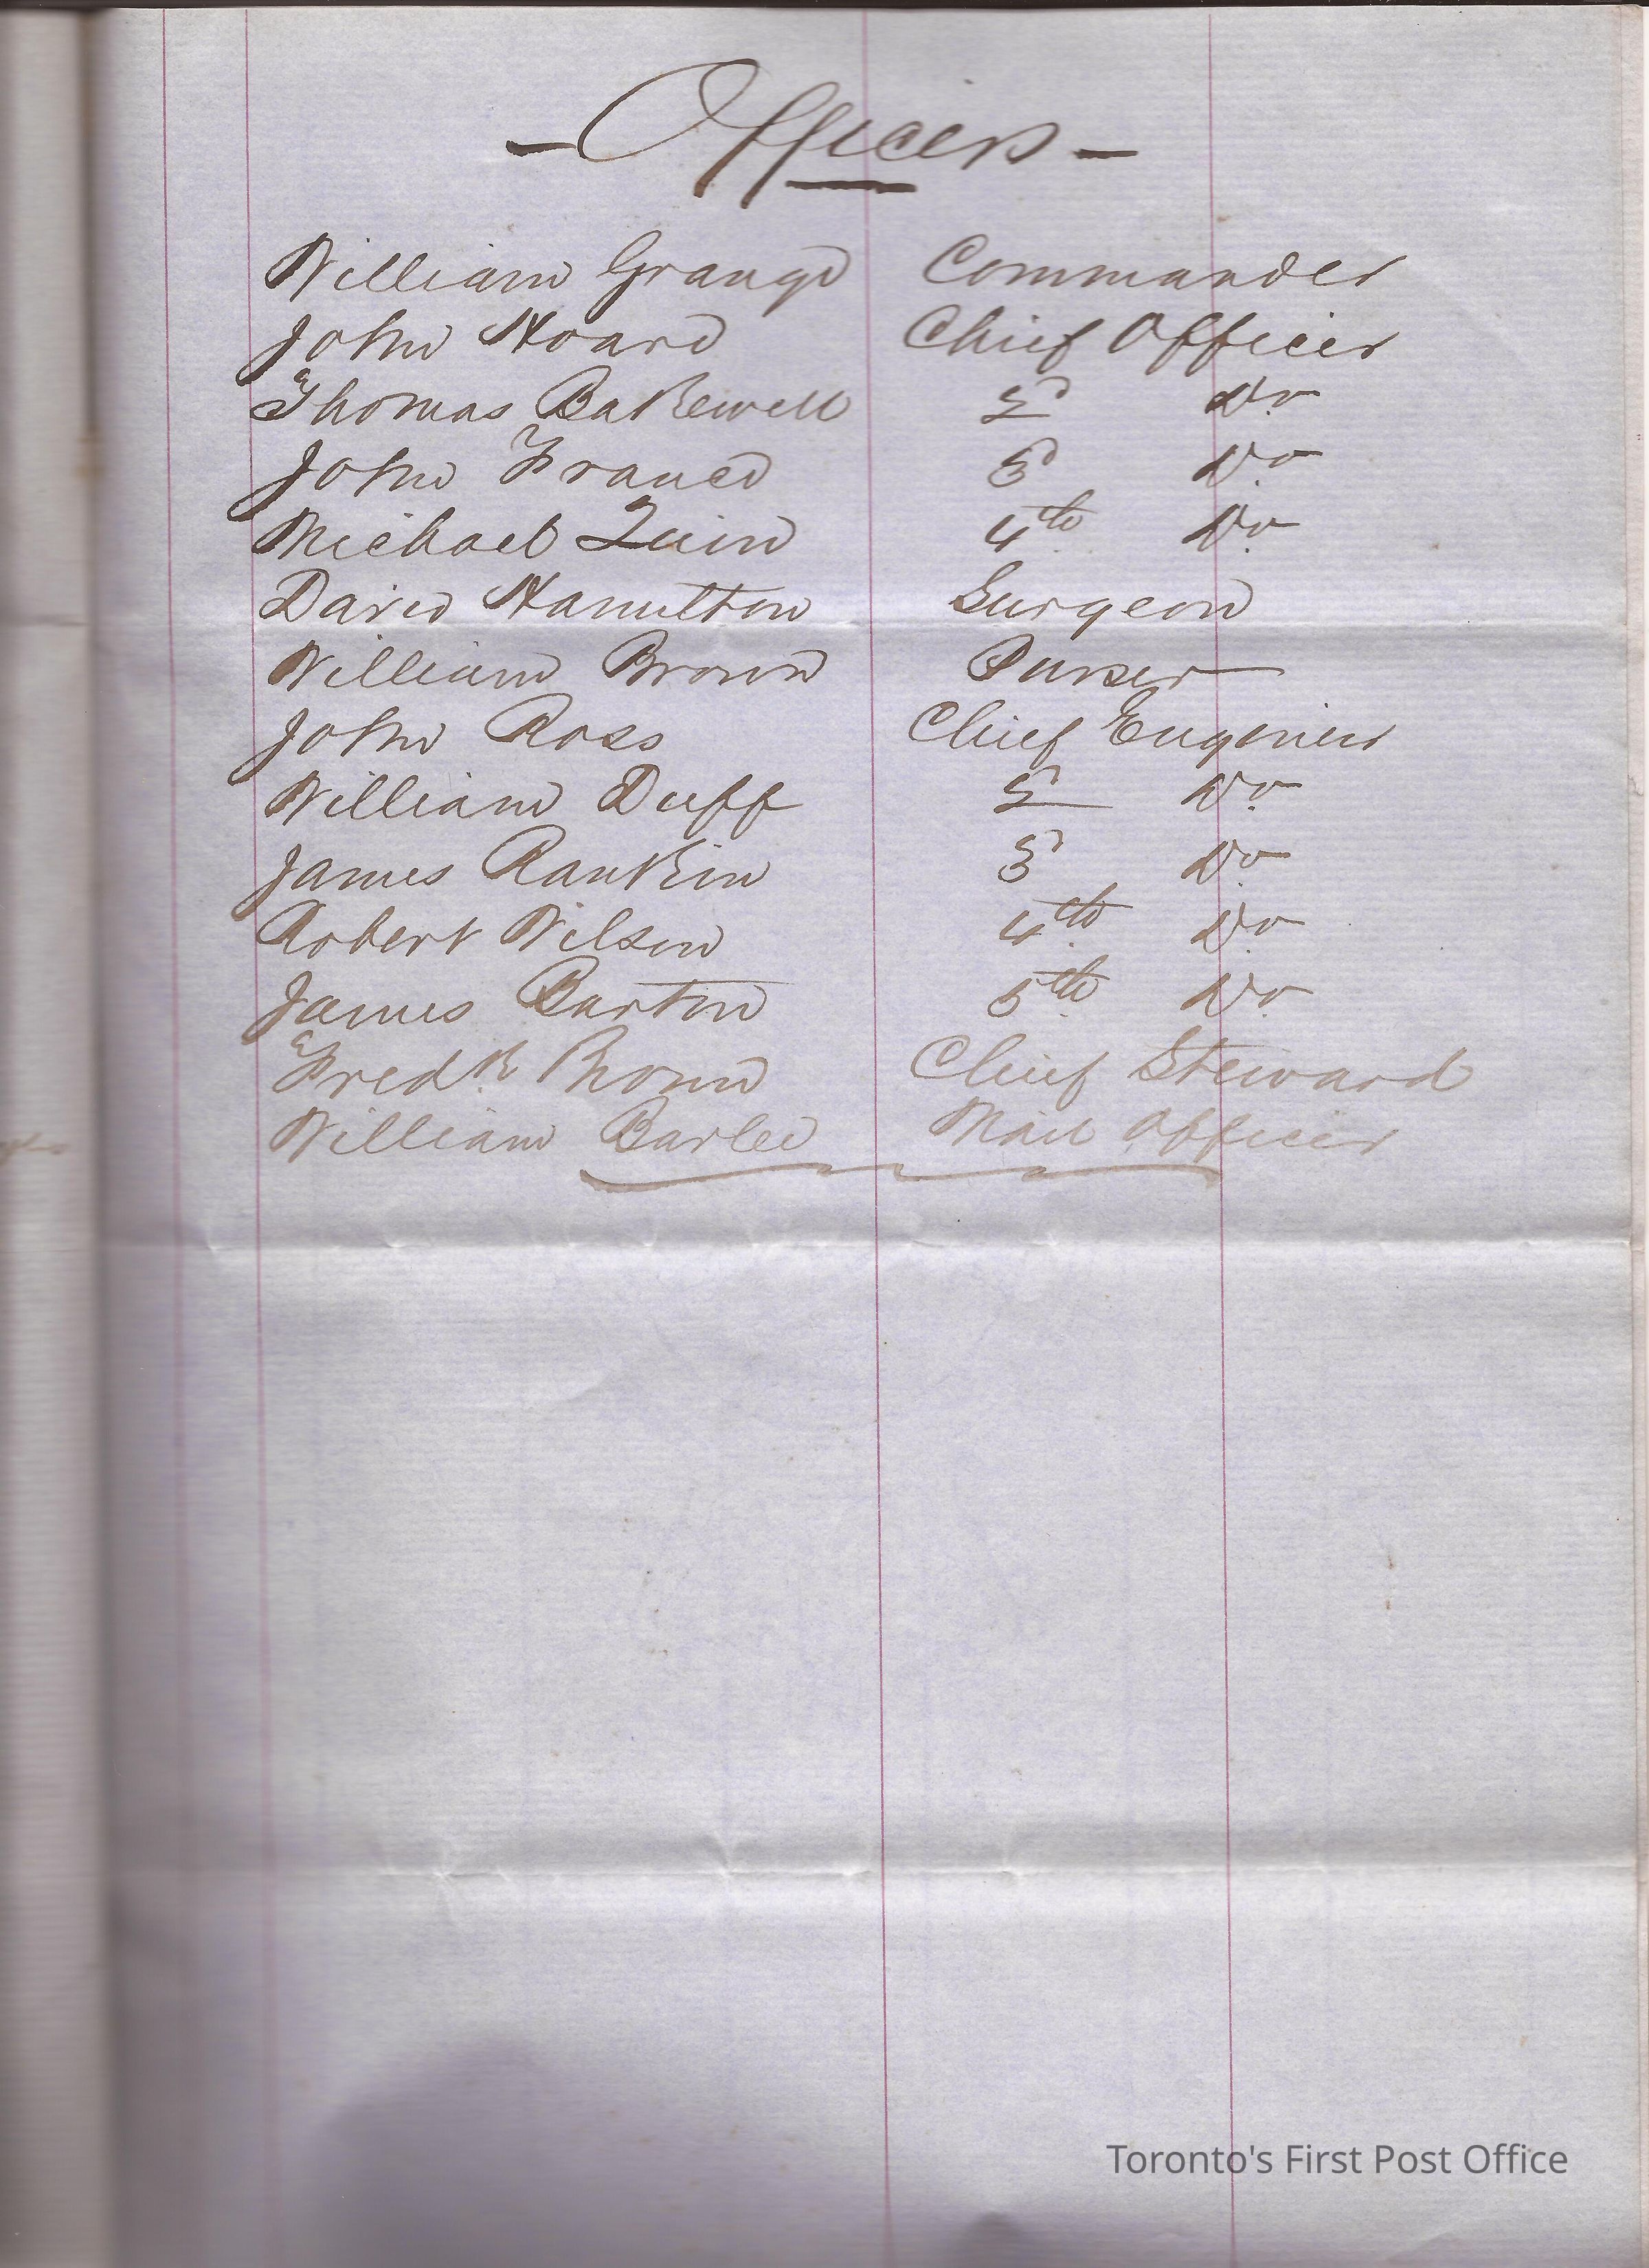 - Officers -
William Grange Commander
John Hoard Chief Officer
Thomas Bakewell 2d Do
John France 3d Do
Michael Quin 4th Do
David Hamilton Surgeon
William Brown Purser
John Ross Chief Engineer
William Duff 2d Do
James Rankin 3d Do
Robert Wilson 4th Do
James Barton 5th Do
Fredk Chief Steward
William Barlee Mail Officer
Toronto's First Post Office